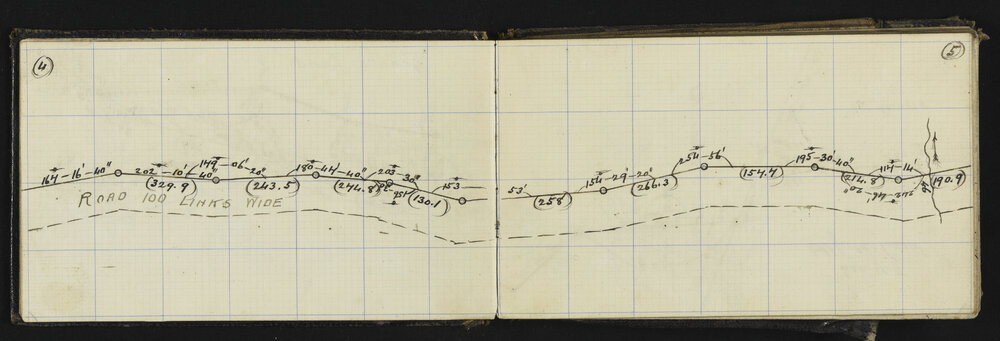 4
5
164-16'-40"
202-10'-40"
149-06'-20"
180-44'-40"
203-30"
153-53'
154-29'-20"
254-56'
195-30'-40"
114-14'
(329.9)
(243.5)
(274.8)
(130.1)
(258)
(266.3)
(154.7)
(214.8)
(190.9)
ROAD 100 LINKS WIDE